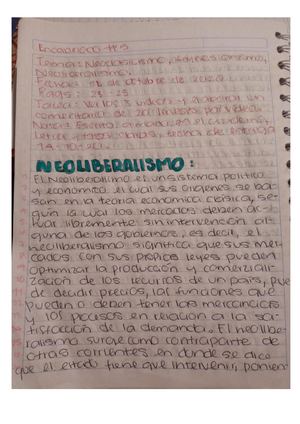 Encargo #5
Teorías: Neoclasicismo, keynesianismo,
Neoliberalismo.
Fecha: de octubre de 2020
Págs: 23-25
Tarea: Ver los 3 videos y elaborar un
comentario de 20 renglones por video.
Nota: Escrito a mano en el cuaderno,
letra clara, fecha de entrega
14-10-20.
NEOLIBERALISMO:
El Neoliberalismo es un sistema político
y económico el cual sus orígenes se ba-
san en la teoría económica clásica, se-
gún la cual los mercados deben ac-
tuar libremente sin intervención al-
guna de los gobiernos, es decir, el
neoliberalismo significa que sus mer-
cados, con sus propias leyes pueden
optimizar la producción y comerciali-
zación de los recursos de un país, pue-
de decidir precios, las funciones que
pueden o deben tener las mercancías
y los procesos en relación a la sa-
tisfacción de la demanda. El neolibe-
ralismo surge como contraparte de
otras corrientes en donde se dice
que el estado tiene que intervenir, ponien